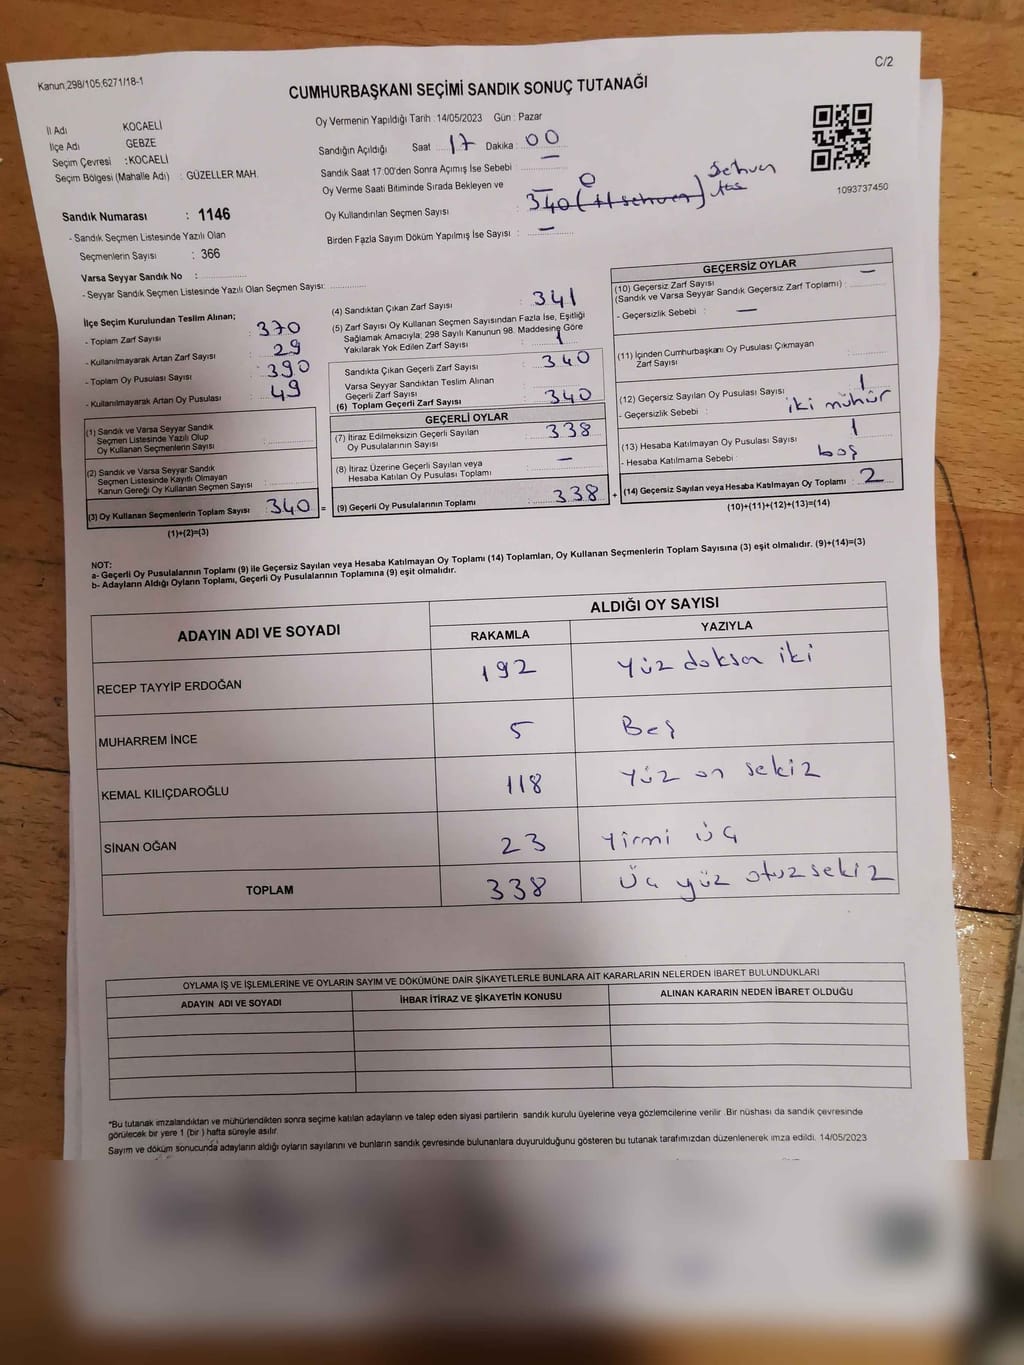 Kanun;298/105,6271/18-1
C/2
CUMHURBAŞKANI SEÇİMİ SANDIK SONUÇ TUTANAĞI
İl Adı KOCAELİ
İlçe Adı GEBZE
Seçim Çevresi :KOCAELİ
Seçim Bölgesi (Mahalle Adı) : GÜZELLER MAH.
Sandık Numarası : 1146
- Sandık Seçmen Listesinde Yazılı Olan
Seçmenlerin Sayısı : 366
Varsa Seyyar Sandık No :
- Seyyar Sandık Seçmen Listesinde Yazılı Olan Seçmen Sayısı:
Oy Vermenin Yapıldığı Tarih : 14/05/2023 Gün : Pazar
Sandığın Açıldığı Saat : 17 Dakika : 00
Sandık Saat 17:00'den Sonra Açımış İse Sebebi : —
Oy Verme Saati Bitiminde Sırada Bekleyen ve
Oy Kullandırılan Seçmen Sayısı : 340 0 Sehven
Birden Fazla Sayım Döküm Yapılmış İse Sayısı : —
1093737450
İlçe Seçim Kurulundan Teslim Alınan;
- Toplam Zarf Sayısı : 370
- Kullanılmayarak Artan Zarf Sayısı : 29
- Toplam Oy Pusulası Sayısı : 390
- Kullanılmayarak Artan Oy Pusulası : 49
(1) Sandık ve Varsa Seyyar Sandık
Seçmen Listesinde Yazılı Olup
Oy Kullanan Seçmenlerin Sayısı :
(2) Sandık ve Varsa Seyyar Sandık
Seçmen Listesinde Kayıtlı Olmayan
Kanun Gereği Oy Kullanan Seçmen Sayısı :
(3) Oy Kullanan Seçmenlerin Toplam Sayısı : 340 =
(1)+(2)=(3)
(4) Sandıktan Çıkan Zarf Sayısı : 341
(5) Zarf Sayısı Oy Kullanan Seçmen Sayısından Fazla İse, Eşitliği
Sağlamak Amacıyla; 298 Sayılı Kanunun 98. Maddesine Göre
Yakılarak Yok Edilen Zarf Sayısı : 1
Sandıkta Çıkan Geçerli Zarf Sayısı : 340
Varsa Seyyar Sandıktan Teslim Alınan
Geçerli Zarf Sayısı :
(6) Toplam Geçerli Zarf Sayısı : 340
GEÇERLİ OYLAR
(7) İtiraz Edilmeksizin Geçerli Sayılan
Oy Pusulalarının Sayısı : 338
(8) İtiraz Üzerine Geçerli Sayılan veya
Hesaba Katılan Oy Pusulası Toplamı : —
(9) Geçerli Oy Pusulalarının Toplamı : 338 +
GEÇERSİZ OYLAR
(10) Geçersiz Zarf Sayısı —
(Sandık ve Varsa Seyyar Sandık Geçersiz Zarf Toplamı) :
- Geçersizlik Sebebi : —
(11) İçinden Cumhurbaşkanı Oy Pusulası Çıkmayan
Zarf Sayısı :
(12) Geçersiz Sayılan Oy Pusulası Sayısı : 1
- Geçersizlik Sebebi : iki mühür
(13) Hesaba Katılmayan Oy Pusulası Sayısı : 1
- Hesaba Katılmama Sebebi : boş
(14) Geçersiz Sayılan veya Hesaba Katılmayan Oy Toplamı : 2
(10)+(11)+(12)+(13)=(14)
NOT:
a- Geçerli Oy Pusulalarının Toplamı (9) ile Geçersiz Sayılan veya Hesaba Katılmayan Oy Toplamı (14) Toplamları, Oy Kullanan Seçmenlerin Toplam Sayısına (3) eşit olmalıdır. (9)+(14)=(3)
b- Adayların Aldığı Oyların Toplamı, Geçerli Oy Pusulalarının Toplamına (9) eşit olmalıdır.
ADAYIN ADI VE SOYADI ALDIĞI OY SAYISI
RAKAMLA YAZIYLA
RECEP TAYYİP ERDOĞAN 192 Yüz doksan iki
MUHARREM İNCE 5 Beş
KEMAL KILIÇDAROĞLU 118 Yüz on sekiz
SİNAN OĞAN 23 Yirmi üç
TOPLAM 338 Üç yüz otuz sekiz
OYLAMA İŞ VE İŞLEMLERİNE VE OYLARIN SAYIM VE DÖKÜMÜNE DAİR ŞİKAYETLERLE BUNLARA AİT KARARLARIN NELERDEN İBARET BULUNDUKLARI
ADAYIN ADI VE SOYADI İHBAR İTİRAZ VE ŞİKAYETİN KONUSU ALINAN KARARIN NEDEN İBARET OLDUĞU
*Bu tutanak imzalandıktan ve mühürlendikten sonra seçime katılan adayların ve talep eden siyasi partilerin sandık kurulu üyelerine veya gözlemcilerine verilir. Bir nüshası da sandık çevresinde
görülecek bir yere 1 (bir ) hafta süreyle asılır.
Sayım ve döküm sonucunda adayların aldığı oyların sayılarını ve bunların sandık çevresinde bulunanlara duyurulduğunu gösteren bu tutanak tarafımızdan düzenlenerek imza edildi. 14/05/2023